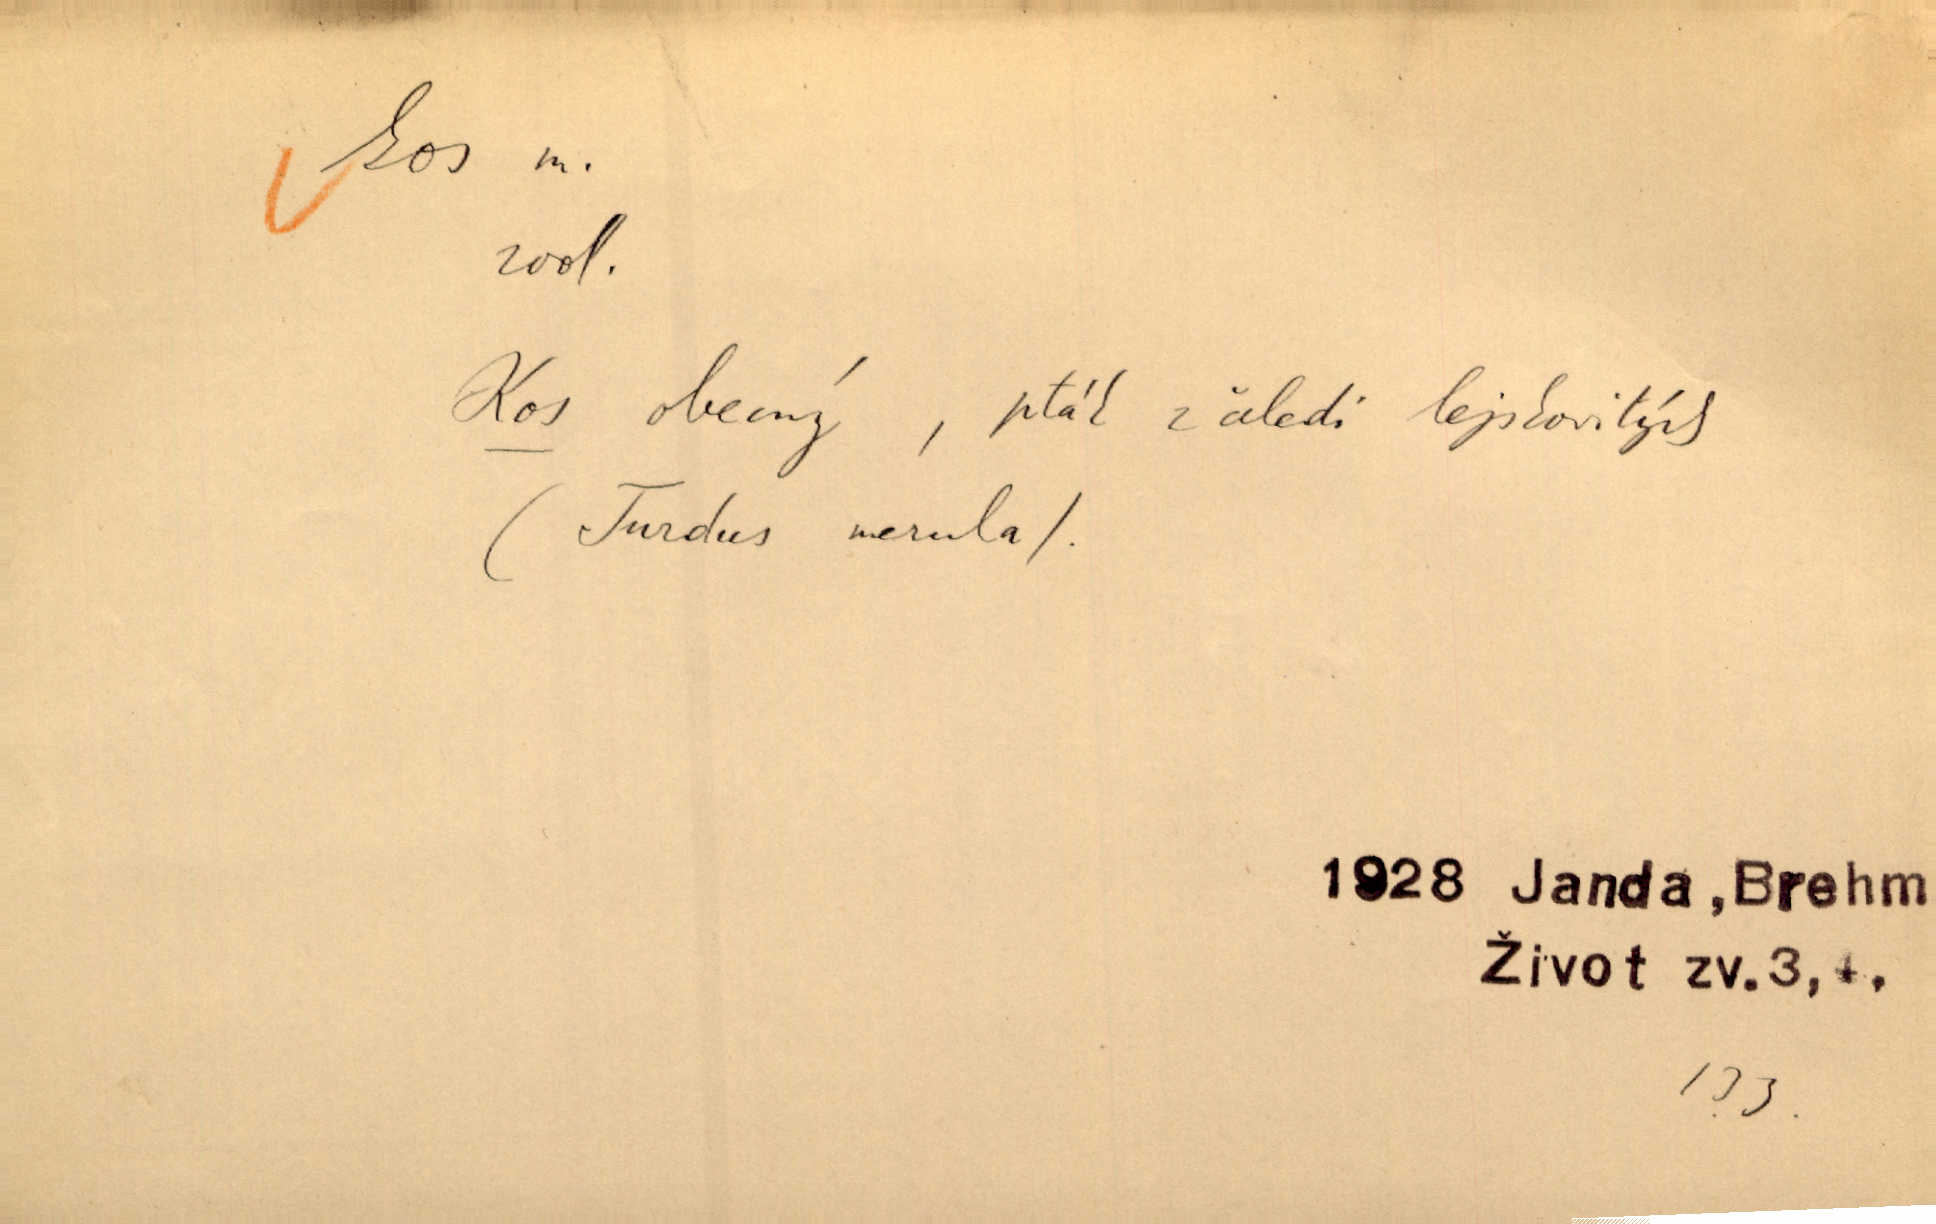 kos m.
zool.
Kos obecný, pták z čeledi lejskovitých
(Turdus merula).
1928 Janda,Brehm
Život zv.3,4.